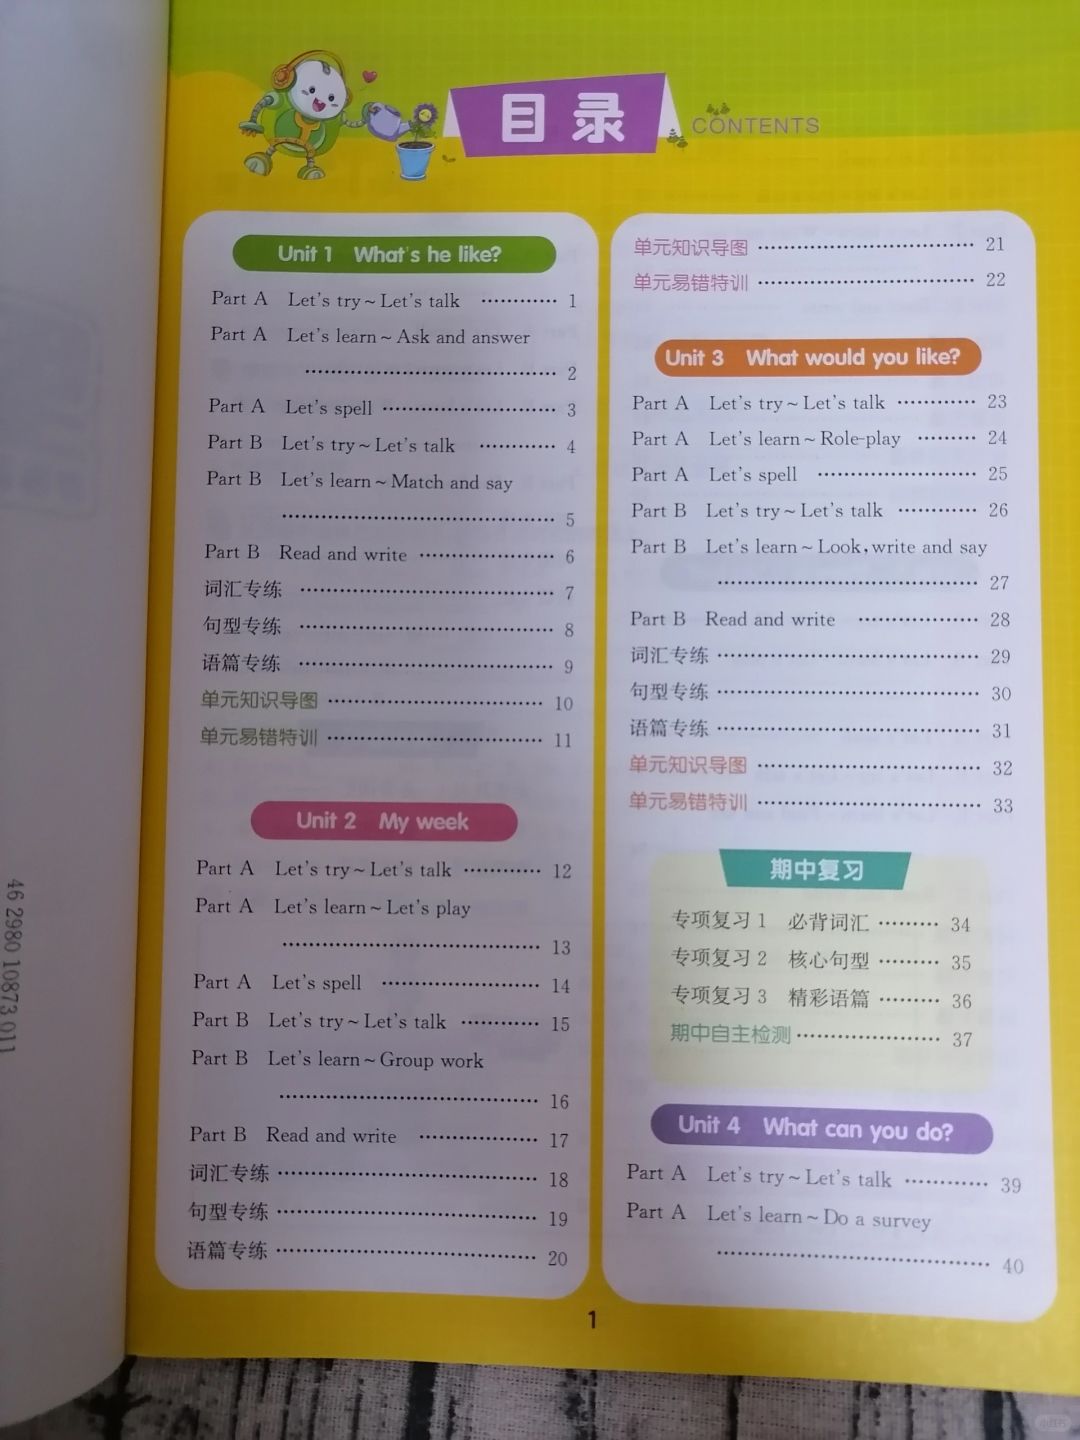 目录 CONTENTS
Unit 1 What's he like?
Part A Let's try~Let's talk ………… 1
Part A Let's learn~Ask and answer
………………………………… 2
Part A Let's spell ……………………… 3
Part B Let's try~Let's talk ………… 4
Part B Let's learn~Match and say
…………………………………… 5
Part B Read and write ………………… 6
词汇专练 ………………………………… 7
句型专练 ………………………………… 8
语篇专练 ………………………………… 9
单元知识导图 …………………………… 10
单元易错特训 …………………………… 11
Unit 2 My week
Part A Let's try~Let's talk ………… 12
Part A Let's learn~Let's play
………………………………… 13
Part A Let's spell …………………… 14
Part B Let's try~Let's talk ………… 15
Part B Let's learn~Group work
………………………………… 16
Part B Read and write ……………… 17
词汇专练 ………………………………… 18
句型专练 ………………………………… 19
语篇专练 ………………………………… 20
单元知识导图 …………………………… 21
单元易错特训 …………………………… 22
Unit 3 What would you like?
Part A Let's try~Let's talk ………… 23
Part A Let's learn~Role-play ……… 24
Part A Let's spell …………………… 25
Part B Let's try~Let's talk ………… 26
Part B Let's learn~Look,write and say
………………………………… 27
Part B Read and write ……………… 28
词汇专练 ………………………………… 29
句型专练 ………………………………… 30
语篇专练 ………………………………… 31
单元知识导图 …………………………… 32
单元易错特训 …………………………… 33
期中复习
专项复习1 必背词汇 ……… 34
专项复习2 核心句型 ……… 35
专项复习3 精彩语篇 ……… 36
期中自主检测 ………………… 37
Unit 4 What can you do?
Part A Let's try~Let's talk ………… 39
Part A Let's learn~Do a survey
…………………………………… 40
1
46 2980 10873 011
小红书